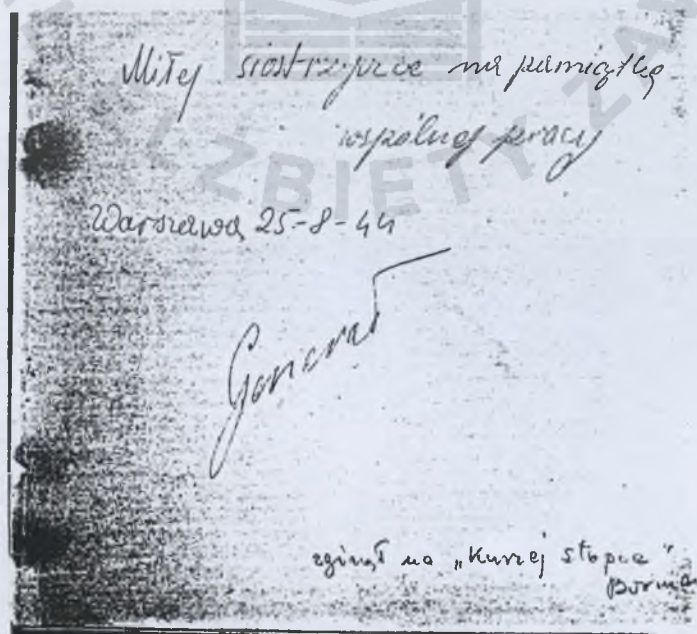 Miłej siostrzyczce na pamiątkę
wspólnej pracy
Warszawa 25-8-44
zginął na „Kurzej stopce”
ZBIETY ZA